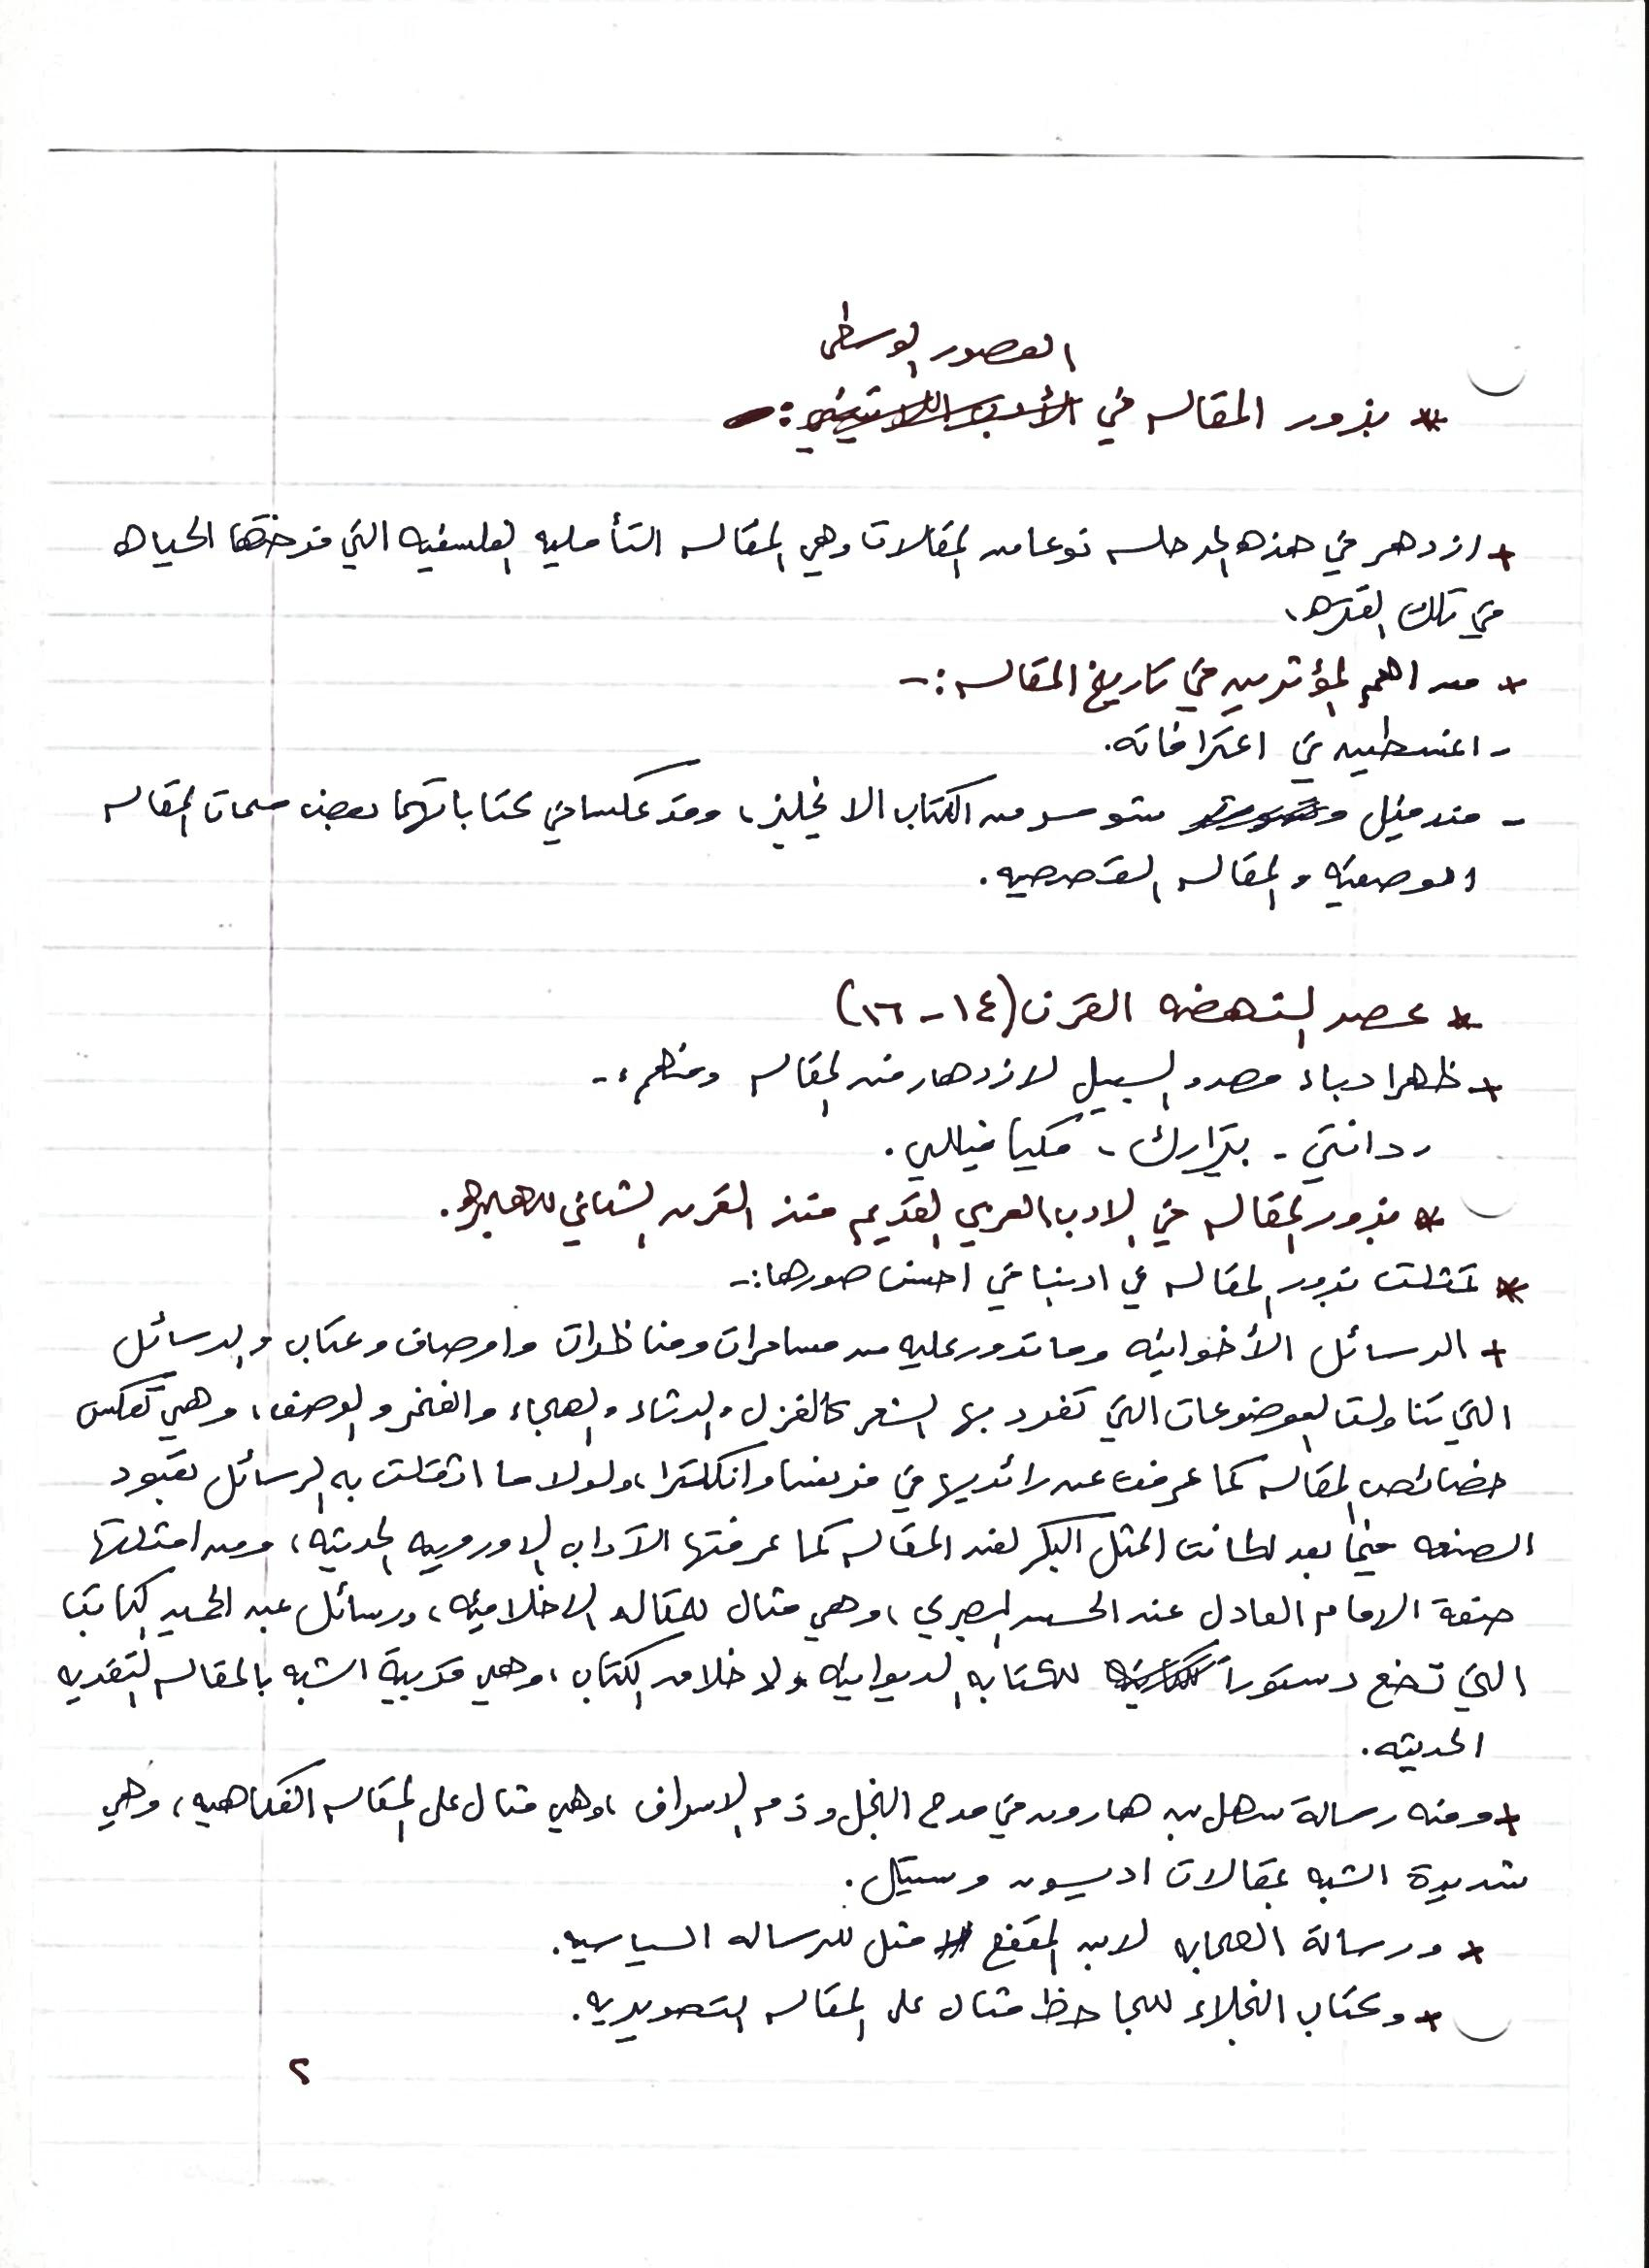 العصور الوسطى
* بذور المقاله في الأدب اللاتيني :-
+ ازدهر في هذه المرحله نوعا من المقالات وهي المقاله التأمليه الفلسفيه التي فرضتها الحياه
في تلك الفتره،
+ من اهم المؤثرين في تاريخ المقاله :-
- اغسطين في اعترافاته.
- مندفيل و ستو من الكتاب الانجليز، وقد عكسا في كتاباتهما بعض سمات المقاله
الوصفيه والمقاله القصصيه.
* عصر النهضه القرن (١٤ - ١٦)
+ ظهر ادباء مهدو السبيل لازدهار فن المقاله ومنهم :-
- دانتي - بترارك - مكيافيللي.
* بذور المقاله في الادب العربي القديم منذ القرن الثاني للهجره.
* تمثلت بذور المقاله في ادبنا في احسن صورها :-
+ الرسائل الأخوانيه وما تدور عليه من مسامرات ومناظرات واوصاف وعتاب والرسائل
التي تناولت الموضوعات التي تفرد بها الشعر كالغزل والرثاء والهجاء والفخر والوصف، وهي تعكس
خصائص المقاله كما عرفت عن رائديها في فرنسا وانكلترا، ولولا ما اثقلت به الرسائل بقيود
الصنعه فيما بعد لكانت المثل البكر لفن المقاله كما عرفتها الآداب الاوروبيه الحديثه، ومن امثلتها
صفة الامام العادل عند الحسن البصري، وهي مثال للمقاله الاخلاقيه، ورسائل عبد الحميد الكاتب
التي تضع دستوراً للكتابه الديوانيه ولاخلاق الكتاب، وهي قريبة الشبه بالمقاله النقديه
الحديثه.
+ ومنه رسالة سهل بن هارون في مدح البخل وذم الاسراف، وهي مثال على المقاله الفكاهيه، وهي
شديدة الشبه بمقالات اديسون وستيل.
+ ورسالة الصحابه لابن المقفع مثل للرساله السياسيه.
+ وكتاب البخلاء للجاحظ مثال على المقاله التصويريه.
٢